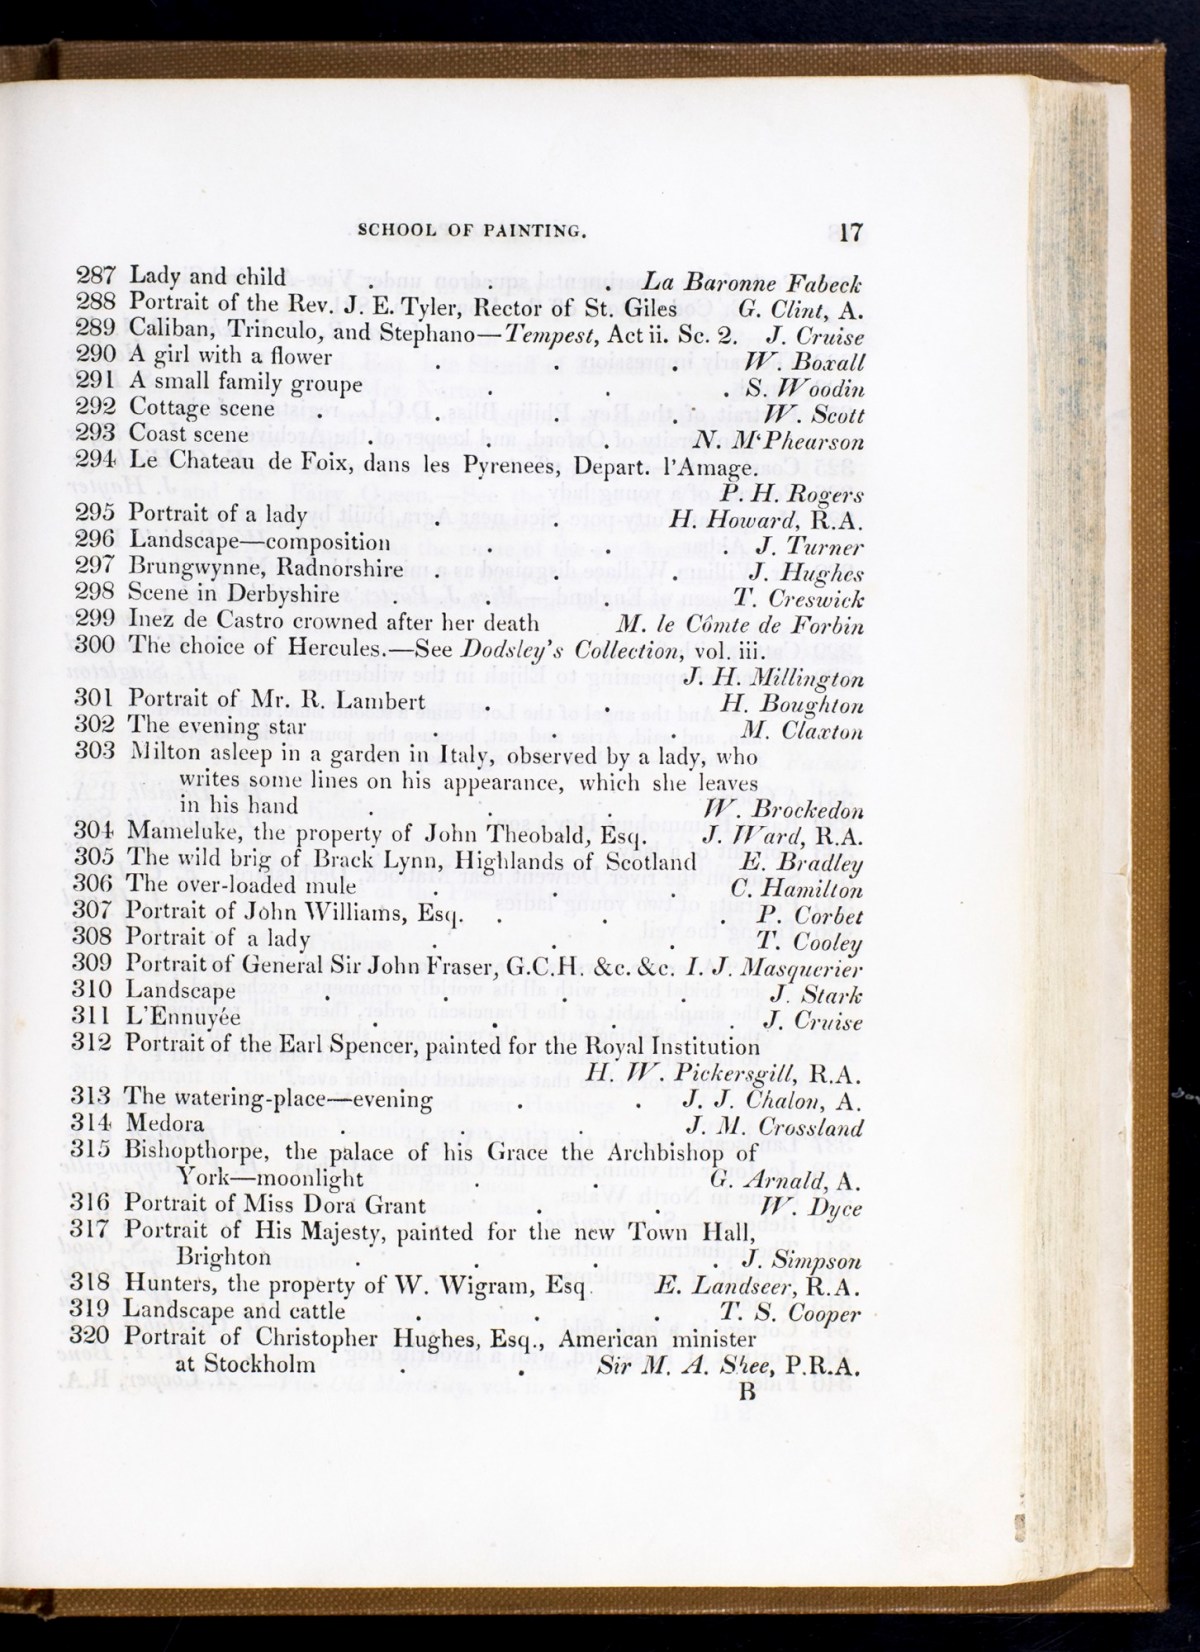 SCHOOL OF PAINTING. 17
287 Lady and child . . . La Baronne Fabeck
288 Portrait of the Rev. J. E. Tyler, Rector of St. Giles G. Clint, A.
289 Caliban, Trinculo, and Stephano—Tempest, Act ii. Sc. 2. J. Cruise
290 A girl with a flower . . . W. Boxall
291 A small family groupe . . . S. Woodin
292 Cottage scene . . . . W. Scott
293 Coast scene . . . N. M‘Phearson
294 Le Chateau de Foix, dans les Pyrenees, Depart. l'Amage.
P. H. Rogers
295 Portrait of a lady . . H. Howard, R.A.
296 Landscape—composition . . . J. Turner
297 Brungwynne, Radnorshire . . . J. Hughes
298 Scene in Derbyshire . . . T. Creswick
299 Inez de Castro crowned after her death M. le Cômte de Forbin
300 The choice of Hercules.—See Dodsley's Collection, vol. iii.
J. H. Millington
301 Portrait of Mr. R. Lambert . . H. Boughton
302 The evening star . . . M. Claxton
303 Milton asleep in a garden in Italy, observed by a lady, who
writes some lines on his appearance, which she leaves
in his hand . . . W. Brockedon
304 Mameluke, the property of John Theobald, Esq. J. Ward, R.A.
305 The wild brig of Brack Lynn, Highlands of Scotland E. Bradley
306 The over-loaded mule . . . C. Hamilton
307 Portrait of John Williams, Esq. . . . P. Corbet
308 Portrait of a lady . . . T. Cooley
309 Portrait of General Sir John Fraser, G.C.H. &c. &c. I. J. Masquerier
310 Landscape . . . . J. Stark
311 L'Ennuyée . . . . J. Cruise
312 Portrait of the Earl Spencer, painted for the Royal Institution
H. W. Pickersgill, R.A.
313 The watering-place—evening . . J. J. Chalon, A.
314 Medora . . . J. M. Crossland
315 Bishopthorpe, the palace of his Grace the Archbishop of
York—moonlight . . G. Arnald, A.
316 Portrait of Miss Dora Grant . . W. Dyce
317 Portrait of His Majesty, painted for the new Town Hall,
Brighton . . . . J. Simpson
318 Hunters, the property of W. Wigram, Esq. E. Landseer, R.A.
319 Landscape and cattle . . . T. S. Cooper
320 Portrait of Christopher Hughes, Esq., American minister
at Stockholm . . Sir M. A. Shee, P.R.A.
B